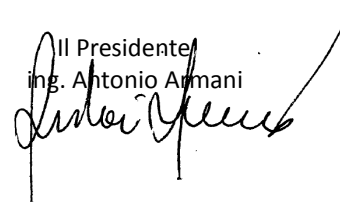 Il Presidente
ing. Antonio Armani